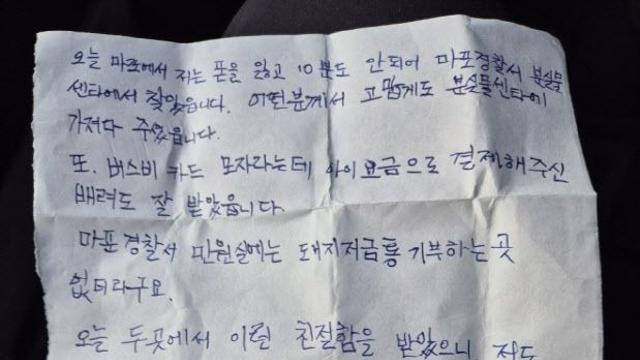 오늘 마포에서 저는 폰을 잃고 10분도 안되어 마포경찰서 분실물
센타에서 찾았읍니다. 어떤분께서 고맙게도 분실물센타에
가져다 주었읍니다.
또. 버스비 카드 모자라는데 아이요금으로 결제해주신
배려도 잘 받았읍니다.
마포경찰서 민원실에는 돼지저금통 기부하는 곳
없더라구요.
오늘 두곳에서 이런 친절함을 받았으니 저도